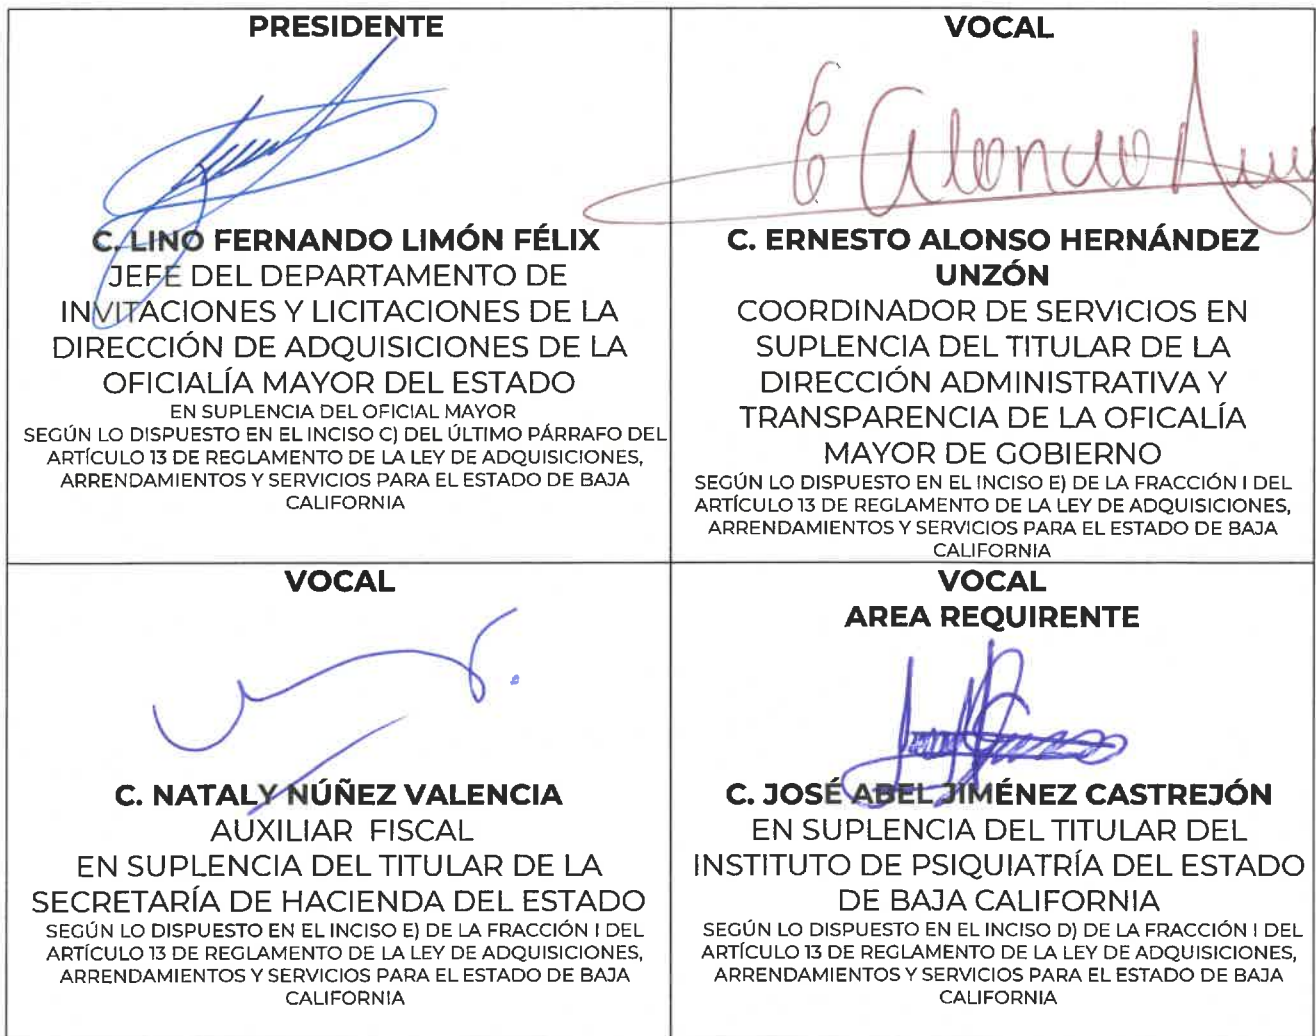 PRESIDENTE
C. LINO FERNANDO LIMÓN FÉLIX
JEFE DEL DEPARTAMENTO DE
INVITACIONES Y LICITACIONES DE LA
DIRECCIÓN DE ADQUISICIONES DE LA
OFICIALÍA MAYOR DEL ESTADO
EN SUPLENCIA DEL OFICIAL MAYOR
SEGÚN LO DISPUESTO EN EL INCISO C) DEL ÚLTIMO PÁRRAFO DEL
ARTÍCULO 13 DE REGLAMENTO DE LA LEY DE ADQUISICIONES,
ARRENDAMIENTOS Y SERVICIOS PARA EL ESTADO DE BAJA
CALIFORNIA
VOCAL
C. ERNESTO ALONSO HERNÁNDEZ
UNZÓN
COORDINADOR DE SERVICIOS EN
SUPLENCIA DEL TITULAR DE LA
DIRECCIÓN ADMINISTRATIVA Y
TRANSPARENCIA DE LA OFICALÍA
MAYOR DE GOBIERNO
SEGÚN LO DISPUESTO EN EL INCISO E) DE LA FRACCIÓN I DEL
ARTÍCULO 13 DE REGLAMENTO DE LA LEY DE ADQUISICIONES,
ARRENDAMIENTOS Y SERVICIOS PARA EL ESTADO DE BAJA
CALIFORNIA
VOCAL
C. NATALY NÚÑEZ VALENCIA
AUXILIAR FISCAL
EN SUPLENCIA DEL TITULAR DE LA
SECRETARÍA DE HACIENDA DEL ESTADO
SEGÚN LO DISPUESTO EN EL INCISO E) DE LA FRACCIÓN I DEL
ARTÍCULO 13 DE REGLAMENTO DE LA LEY DE ADQUISICIONES,
ARRENDAMIENTOS Y SERVICIOS PARA EL ESTADO DE BAJA
CALIFORNIA
VOCAL
AREA REQUIRENTE
C. JOSÉ ABEL JIMÉNEZ CASTREJÓN
EN SUPLENCIA DEL TITULAR DEL
INSTITUTO DE PSIQUIATRÍA DEL ESTADO
DE BAJA CALIFORNIA
SEGÚN LO DISPUESTO EN EL INCISO D) DE LA FRACCIÓN I DEL
ARTÍCULO 13 DE REGLAMENTO DE LA LEY DE ADQUISICIONES,
ARRENDAMIENTOS Y SERVICIOS PARA EL ESTADO DE BAJA
CALIFORNIA